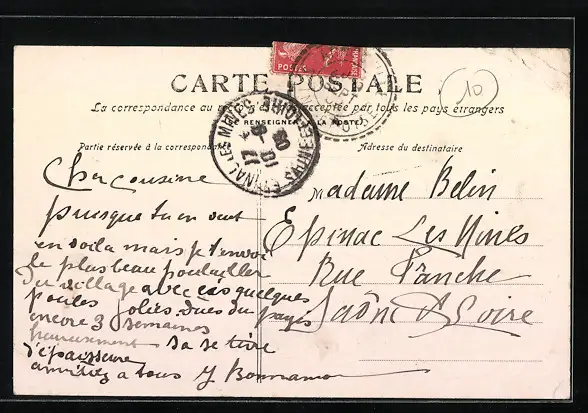 POSTES
FRANÇAISE
CARTE POSTALE
10
La correspondance au r acceptée par tous les pays étrangers
RENSEIGNER A LA POSTE
Partie réservée à la correspondance
Adresse du destinataire
EPINAC LES MINES SAONE-ET-LOIRE
17
10
08
Cher cousine
puisque tu en veut
en voila mais je t'envoi
le plus beau poulailler
du village avec ces quelques
poules jolies dues du pays
encore 3 semaines
heureusement sa se tire
d'épaisseur
amitiez a tous J Bonnamour
Madame Belin
Epinac Les Mines
Rue Franche
Saône & Loire